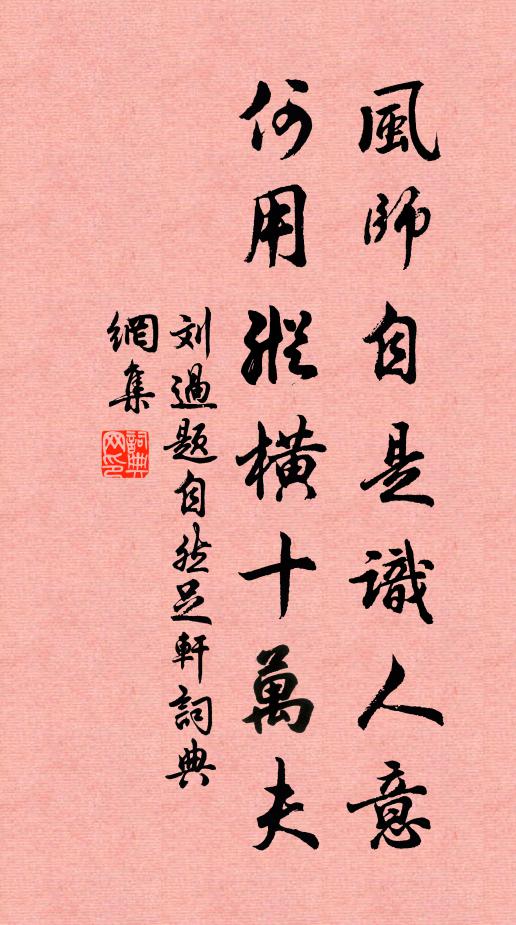 風師自是識人意
何用縱橫十萬夫
刘過题自然足軒詞典
網集
詞典網印